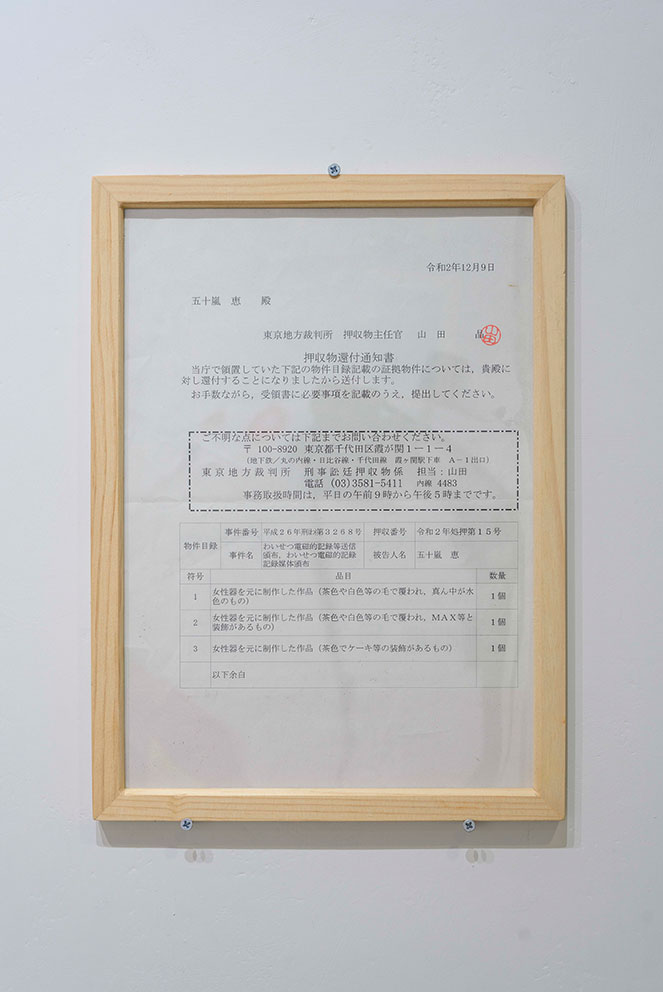 令和2年12月9日
五十嵐 恵 殿
東京地方裁判所 押収物主任官 山田 晶
押収物還付通知書
当庁で領置していた下記の物件目録記載の証拠物件については，貴殿に
対し還付することになりましたから送付します。
お手数ながら，受領書に必要事項を記載のうえ，提出してください。
ご不明な点については下記までお問い合わせください。
〒 100-8920 東京都千代田区霞が関１－１－４
（地下鉄／丸の内線・日比谷線・千代田線 霞ヶ関駅下車 Ａ－１出口）
東京地方裁判所 刑事訟廷押収物係 担当：山田
電話 (03)3581-5411 内線 4483
事務取扱時間は，平日の午前９時から午後５時までです。
物件目録 事件番号 平成２６年刑わ第３２６８号 押収番号 令和２年処押第１５号
事件名 わいせつ電磁的記録等送信
頒布，わいせつ電磁的記録
記録媒体頒布 被告人名 五十嵐 恵
符号 品目 数量
1 女性器を元に制作した作品（茶色や白色等の毛で覆われ，真ん中が水
色のもの） １個
2 女性器を元に制作した作品（茶色や白色等の毛で覆われ，ＭＡＸ等と
装飾があるもの） １個
3 女性器を元に制作した作品（茶色でケーキ等の装飾があるもの） １個
以下余白